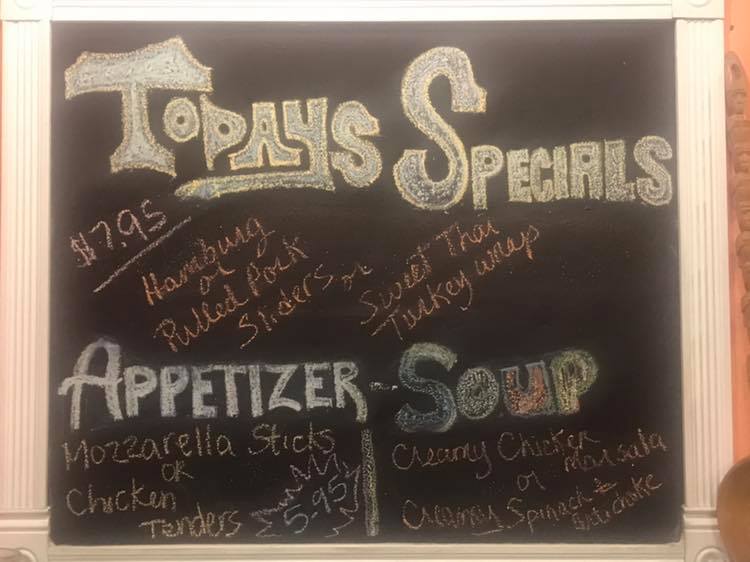 TODAYS SPECIALS
$7.95
Hamburg
or
Pulled Pork
Sliders or
Sweet Thai
Turkey wrap
APPETIZER - SOUP
Mozzarella Sticks
OR
Chicken
Tenders
5.95
Creamy Chicken
marsala
or
Creamy Spinach &
artichoke